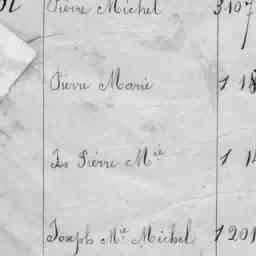 Pierre Michel 3107
Pierre Marie 118
Js Pierre M.ie 11
Joseph M.ie Michel 1201